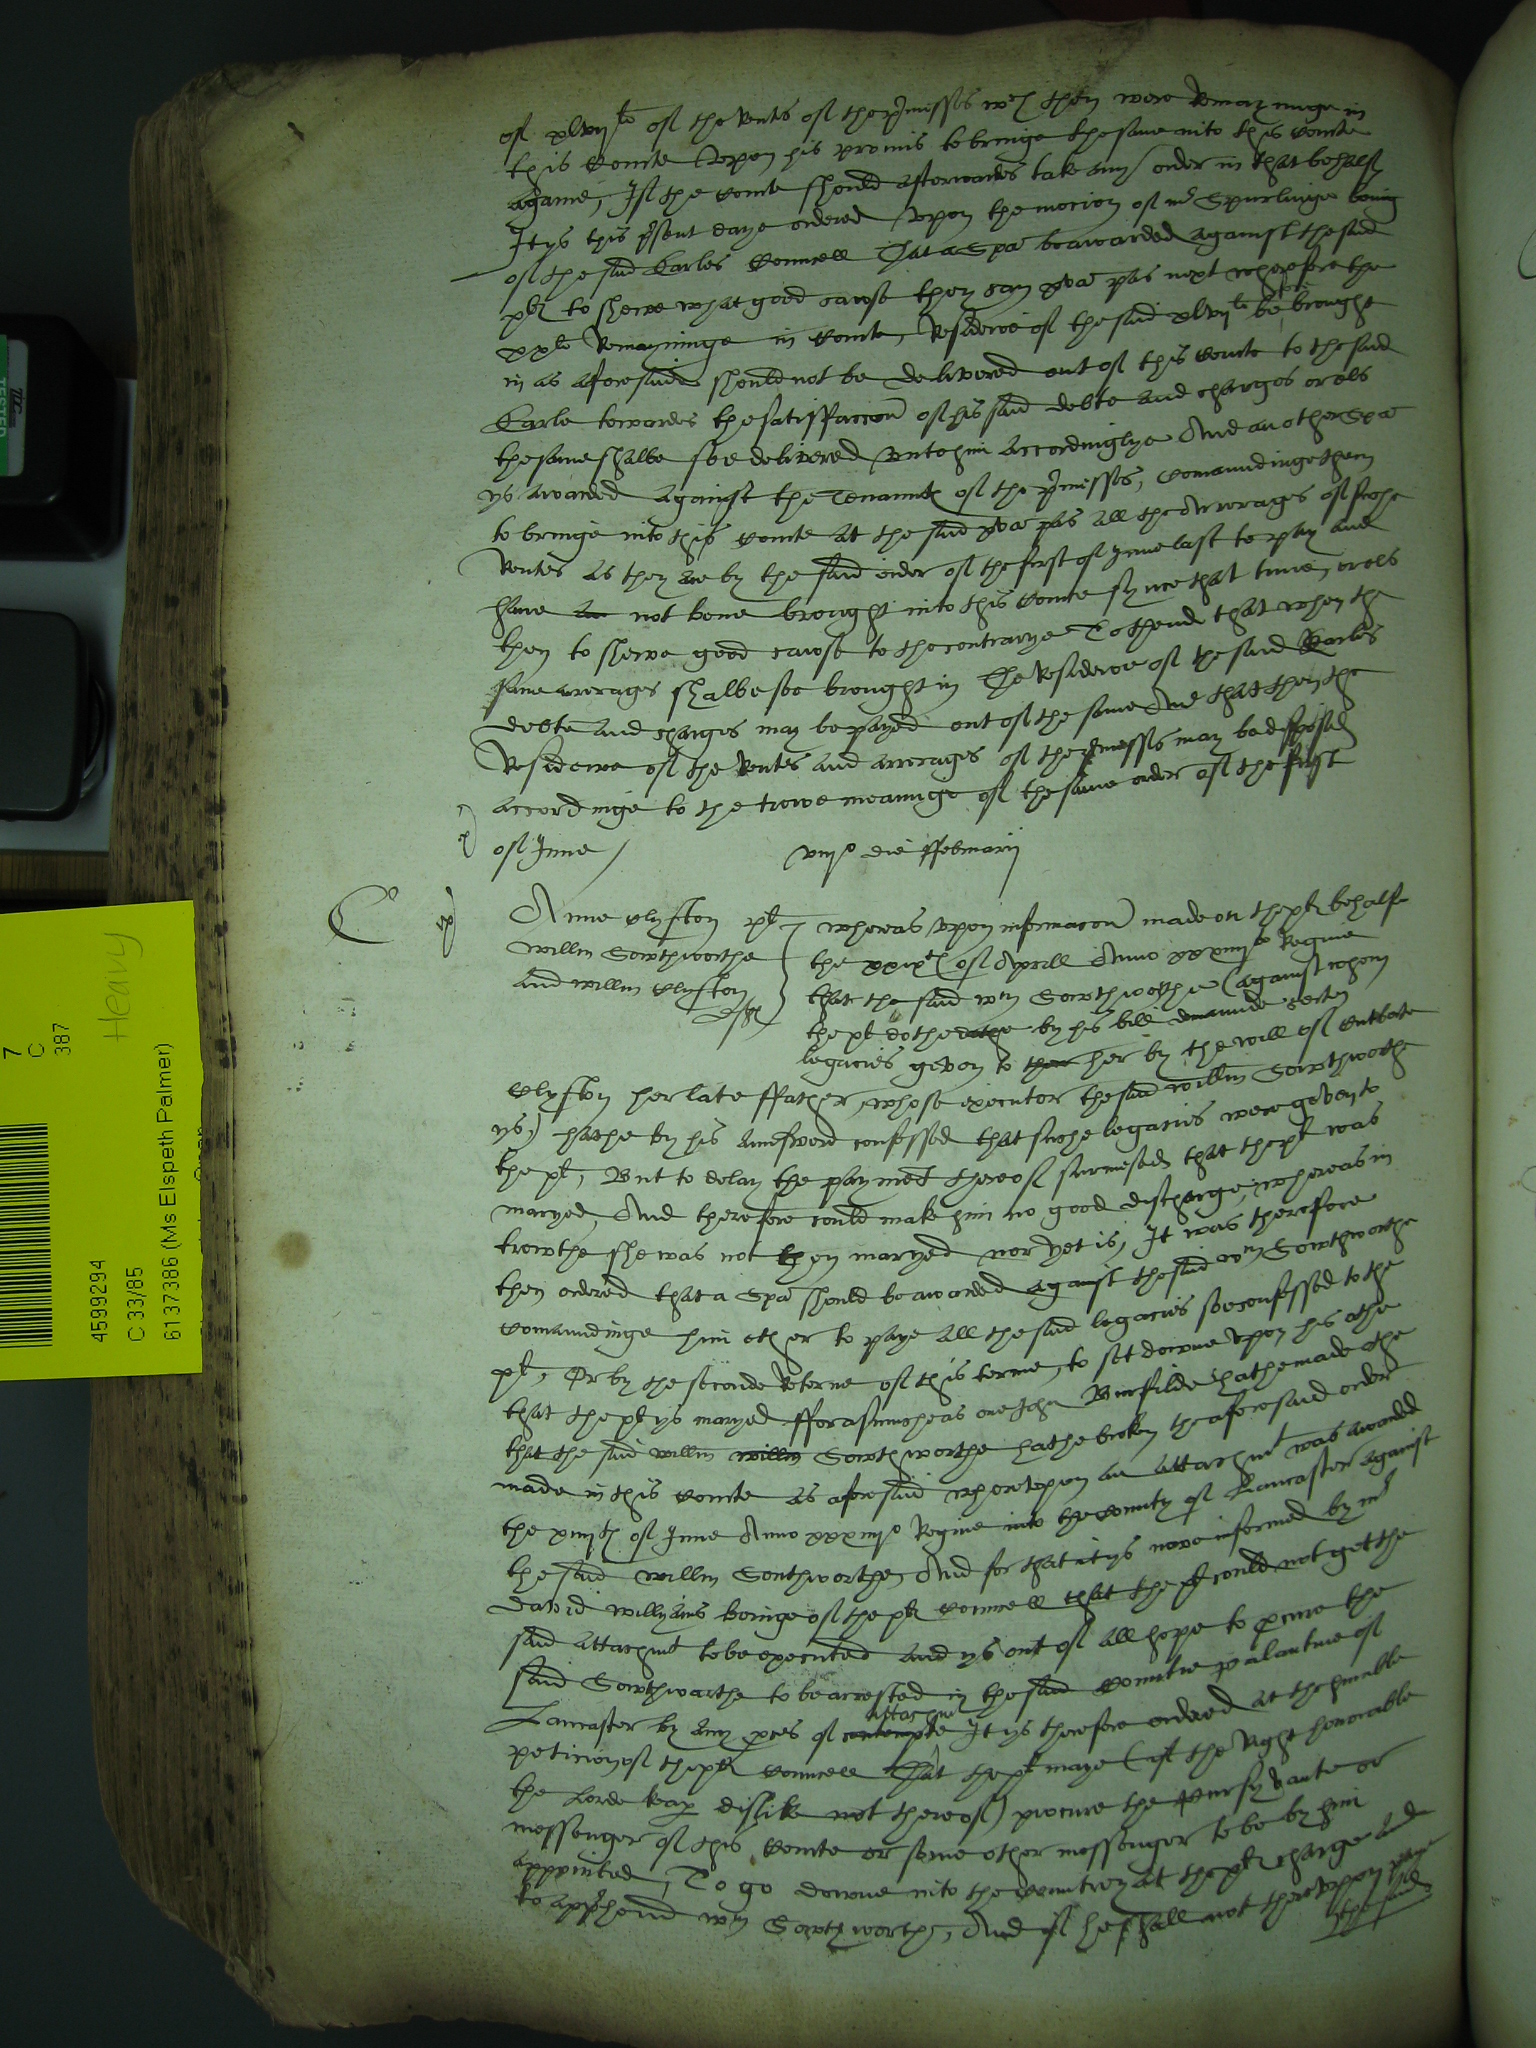 of xlvij li of the Rents of the pmisses wch then were Remayninge in
this Courte Vpon his promis to bringe the same into this Courte
againe, If the Courte should afterwardes take any order in that behalf
It ys this psent daye ordered Vpon the mocion of mr Spurlinge being
of the said Earles Councell That a Spa be awarded against the said
pl to shewe what good cause they can
xxli Remayninge in Courte, Residewe of the said xlvij li be brought
in as aforesaid should not be delivered out of this Courte to the said
Earle towardes the satisffaccion of his said debte and charges or els
the same shalbe soe delivered vnto him accordinglye And an other Spa
ys awarded against the Tenaunts of the pmisses, Comaundinge them
to bringe into this Courte at the said all the Arrerages of suche
Rentes as they are by the said order of the first of June last to pay and
have not bene brought into this Courte synce that time, or els
then to shewe good cause to the contrarye To thend that when the
same arrerages shalbe soe brought in The Residewe of the said Earles
debte and charges may be payed out of the same And that then the
Residewe of the Rentes and arrerages of the pmisses may be disposed
accordinge to the trewe meaninge of the same order of the first
of June /
viijo die ffebruarij
Anne Clyfton pl
willm Sowthworthe
and willm Clyfton
deftes
whereas vpon informacon made on the pl behalfe
the xxixth of Aprill Anno xxxiiijo Regine
that the said wm Sowthworthe (against whom
the pl dothe by his bill demaunde certen
legacies geven to her by the will of Cutbate
Clyfton her late ffather, whose executor the said willm Sowthworth
ys) hathe by his aunsword confessed that suche legacies were geven to
the pl, But to delay the payment thereof surmised that the pl was
maryed, And therefore could make him no good discharge, whereas in
trowthe she was not then maryed nor yet is, It was therefore
then ordered that a Spa should be awarded against the said wm Sowthworthe
Comaundinge him ether to paye all the said legacies soe confessed to the
pl, Or by the seconde Retorne of this terme, to set downe vpon his othe
that the pl ys maryed fforasmuche as one John Burfilde hathe made othe
that the said willm willm Sowthworthe hathe broken the aforesaid order
made in this Courte as aforesaid wherevpon an attachmt was awarded
the xiiijth of June Anno xxxiiijo Regine into the County of Lancaster against
the said willm Southworthe, And for that it ys nowe informed by mr
David willyams beinge of the pl Councell that the pl could not get the
said attachmt to be executed and ys out of all hope to pcure the
said Sowthworthe to be arrested in the said Countie palantine of
Lancaster by any pces of contempte attachmt It ys therefore ordered at the humble
peticion of the pl Councell That the pl maye (if the Right honorable
the Lorde keap dislike not thereof) procure the Pursyvante or
messenger of this Courte or some other messenger to be by him
appointed, To go downe into the Countrey at the pl charge and
to apphend wm Sowthworthe, And if he shall not therevppon paye
the said
TESTED
Heavy
7
C
387
4599294
C 33/85
6137386 (Ms Elspeth Palmer)